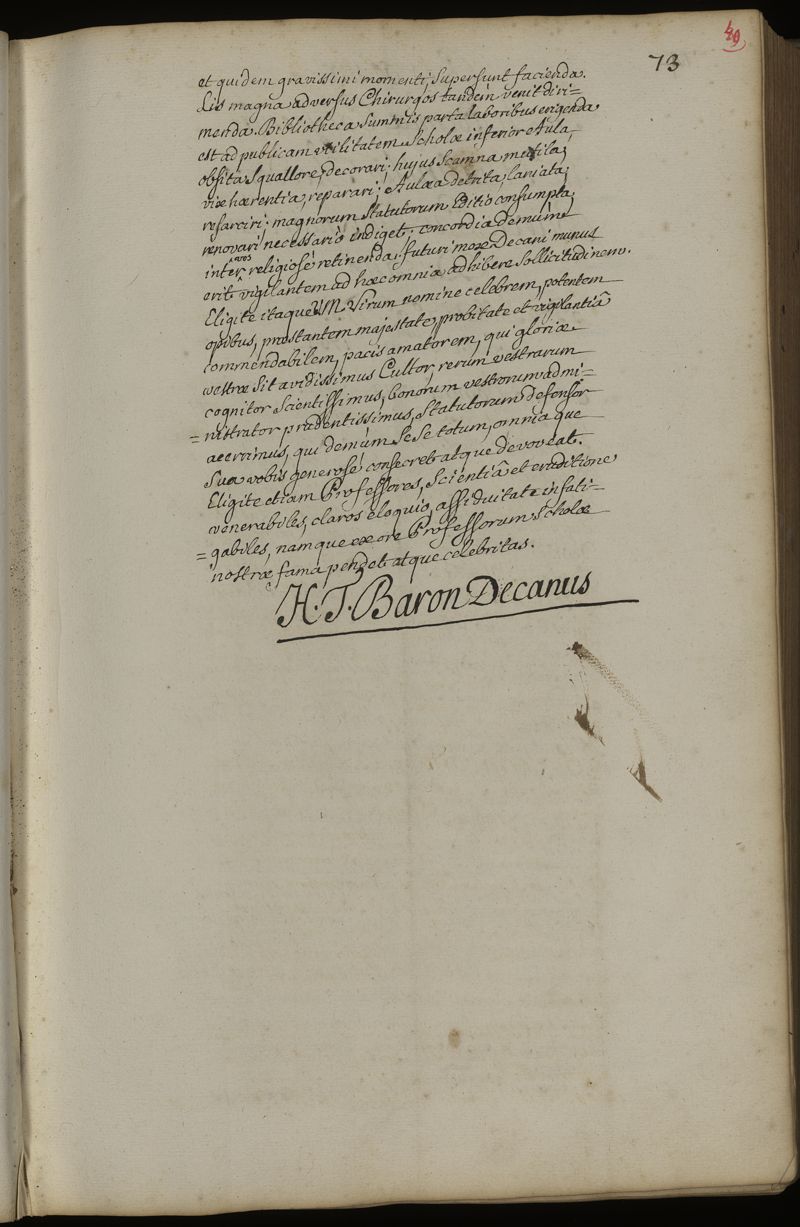 49
73
et quidem gravissimi momenti, supersunt facienda.
Lis magna adversus Chirurgos tandem venit diri=
menda. Bibliotheca summis parta laboribus erigenda
est ad publicam utilitatem. Scholæ inferior Aula,
obsita squallore, decorari; hujus Scamna mutila,
vix hærentia, reparari; Aulæa detrita, laniata,
resarciri; magnorum Statutorum Editio consumpta,
renovari necessario indiget; concordia demùm
inter vos religiosè retinenda. futuri mox Decani munus
erit vigilantem ad hæc omnia adhibere sollicitudinem.
Eligite itaque VM. Virum nomine celebrem, potentem
opibus, præstantem majestate, probitate et vigilantiâ
commendabilem, pacis amatorem, qui gloriæ
vestræ sit avidissimus Cultor, rerum vestrarum
cognitor scientissimus, bonorum vestrorum admi=
=nistrator prudentissimus, Statutorum defensor
acerrimus, qui demùm se se totum, omnia que
sua vobis generosè consecret atque devoveat.
Eligite etiam Professores, scientiâ et eruditione
venerabiles, claros eloquio, assiduitate infati=
=gabiles, namque ex ore Professorum scholæ
nostræ fama pendet atque celebritas.
H. T. Baron Decanus